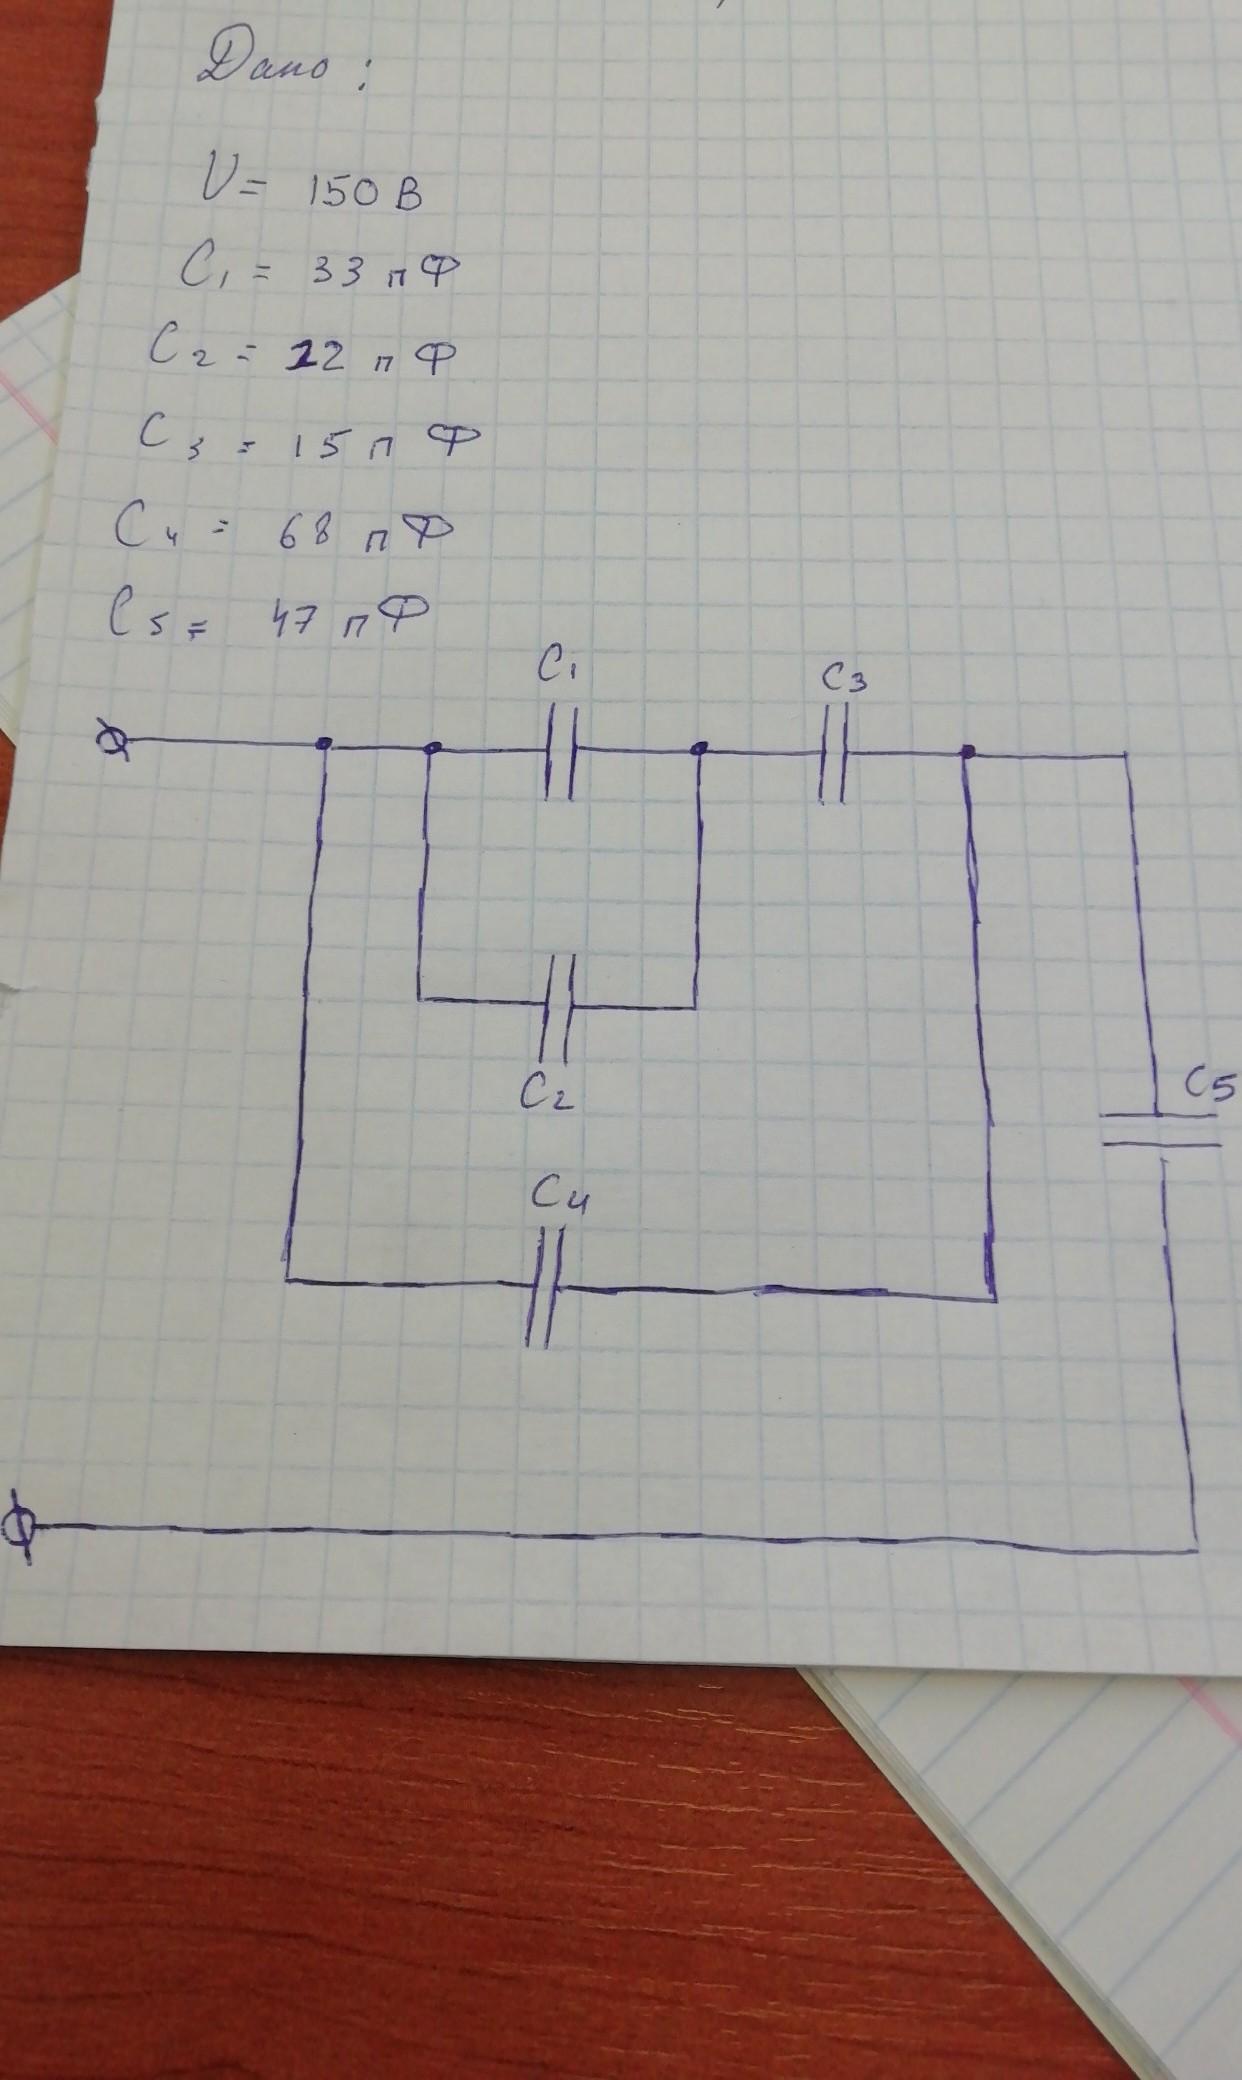 Дано:
U = 150 В
C1 = 33 пФ
C2 = 22 пФ
C3 = 15 пФ
C4 = 68 пФ
C5 = 47 пФ
C1 C3
C2
C5
C4